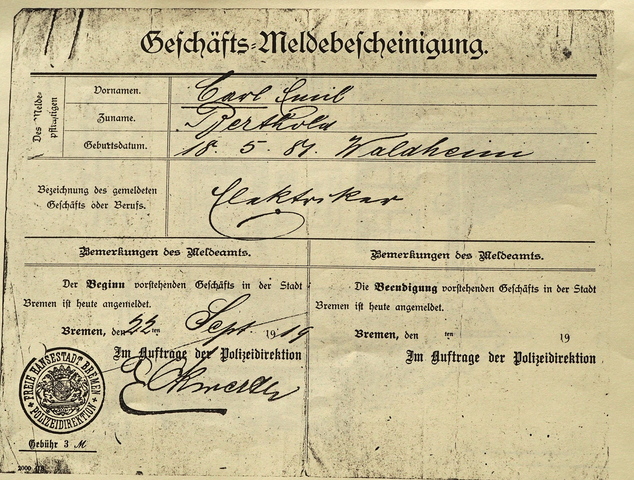 Geschäfts-Meldebescheinigung.
Des Melde-
pflichtigen
Vornamen. Carl Emil
Zuname. Berthold
Geburtsdatum. 18. 5. 87. Waldheim
Bezeichnung des gemeldeten
Geschäfts oder Berufs. Elektriker
Bemerkungen des Meldeamts.
Der Beginn vorstehenden Geschäfts in der Stadt
Bremen ist heute angemeldet.
Bremen, den 22 ten Sept. 1919
Im Auftrage der Polizeidirektion
FREIE HANSESTADT BREMEN
POLIZEIDIREKTION
Gebühr 3 M
Bemerkungen des Meldeamts.
Die Beendigung vorstehenden Geschäfts in der Stadt
Bremen ist heute angemeldet.
Bremen, den ten 19
Im Auftrage der Polizeidirektion